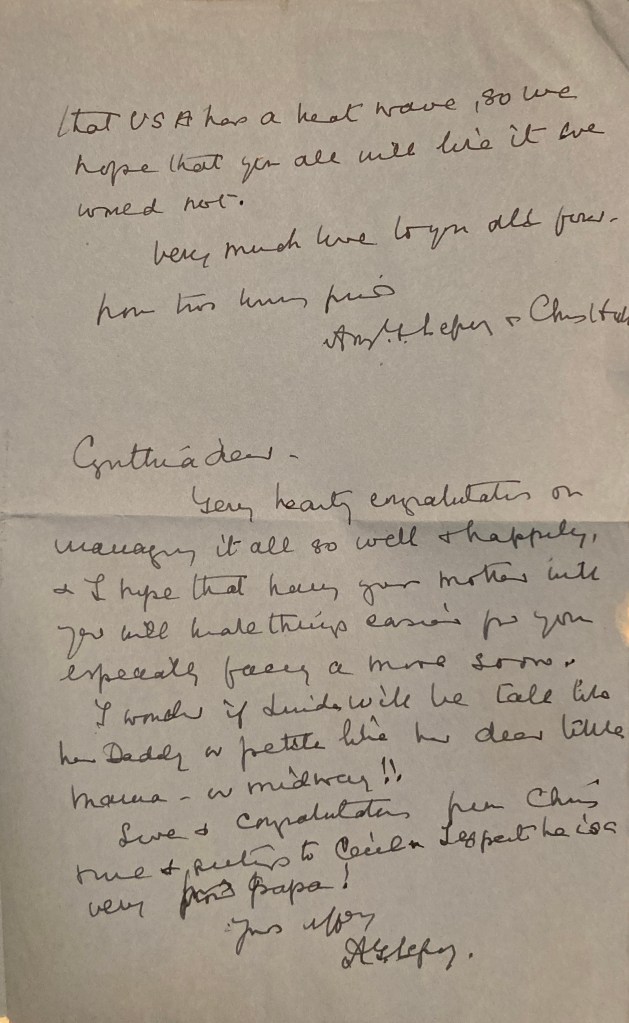 that USA has a heat wave, so we
hope that you all will like it we
would not.
Very much love to you all four.
from two
&
Cynthia dear -
Very hearty congratulations on
managing it all so well & happily,
& I hope that having your mother with
you will make things easier for you
especially facing a move soon.
I wonder if will be tall like
her Daddy or petite like her dear little
Mama - or midway!!
Love & congratulations from Chris
& to Cecil I expect he is a
very Papa!
Yrs